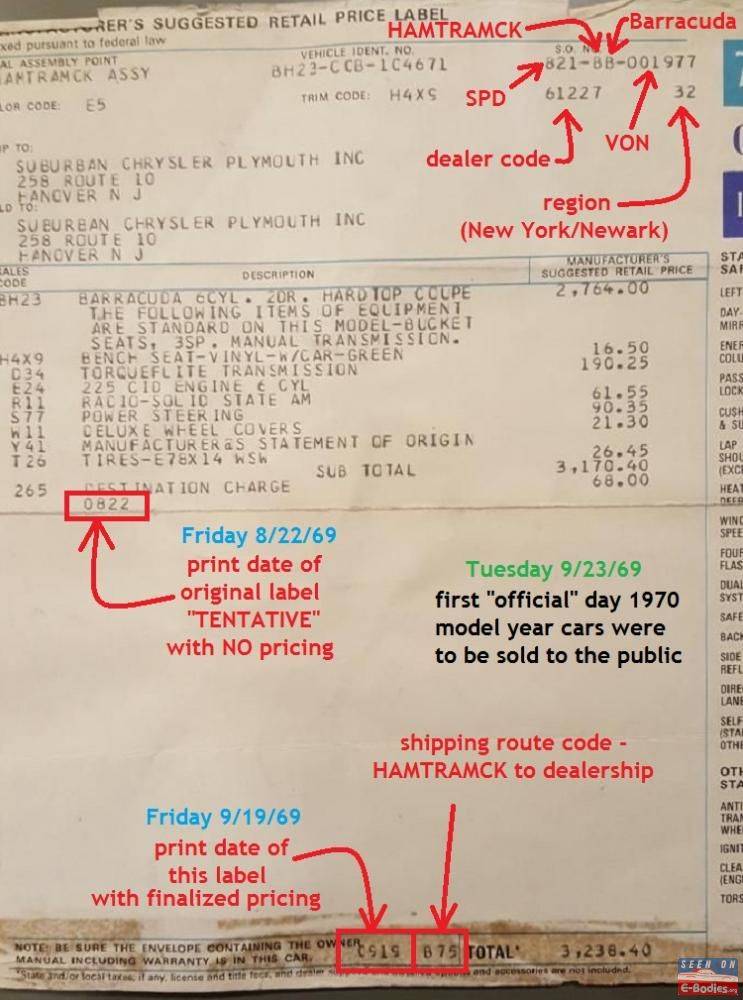 RER'S SUGGESTED RETAIL PRICE LABEL
HAMTRAMCK
Barracuda
xed pursuant to federal law
AL ASSEMBLY POINT
AMTRAMCK ASSY
VEHICLE IDENT. NO.
BH23-CCB-1C4671
S.O. N
821-BB-001977
LOR CODE: E5
TRIM CODE: H4XS
SPD
61227 32
VON
dealer code
region
(New York/Newark)
IP TO:
SUBURBAN CHRYSLER PLYMOUTH INC
258 ROUTE 10
HANOVER N J
LD TO:
SUBURBAN CHRYSLER PLYMOUTH INC
258 ROUTE 10
HANOVER N J
SALES CODE DESCRIPTION MANUFACTURER'S SUGGESTED RETAIL PRICE
BH23 BARRACUDA 6CYL. 2DR. HARDTOP COUPE 2,764.00
THE FOLLOWING ITEMS OF EQUIPMENT
ARE STANDARD ON THIS MODEL-BUCKET
SEATS, 3SP. MANUAL TRANSMISSION.
H4X9 BENCH SEAT-VINYL-W/CAR-GREEN 16.50
D34 TORQUEFLITE TRANSMISSION 190.25
E24 225 CID ENGINE 6 CYL
R11 RADIO-SOLID STATE AM 61.55
S77 POWER STEERING 90.35
W11 DELUXE WHEEL COVERS 21.30
Y41 MANUFACTURER&S STATEMENT OF ORIGIN
T26 TIRES-E78X14 WSW 26.45
SUB TOTAL 3,170.40
265 DESTINATION CHARGE 68.00
0822
Friday 8/22/69
print date of
original label
"TENTATIVE"
with NO pricing
Tuesday 9/23/69
first "official" day 1970
model year cars were
to be sold to the public
shipping route code -
HAMTRAMCK to dealership
Friday 9/19/69
print date of
this label
with finalized pricing
NOTE: BE SURE THE ENVELOPE CONTAINING THE OWNER
MANUAL INCLUDING WARRANTY IS IN THIS CAR.
C919 B75 TOTAL* 3,238.40
*State and/or local taxes, if any, license and title fees, and dealer and accessories are not included.
STA
SAF
LEFT
DAY-
MIRR
ENER
COLU
PASS
LOCK
CUSH
& SU
LAP
SHOU
(EXCE
HEAT
DEFR
WIND
SPEE
FOUR
FLAS
DUAL
SYST
SAFE
BACK
SIDE
REFL
DIRE
LANE
SELF
(STA
OTHE
OTH
STA
ANTI
TRAN
WHE
IGNIT
CLEA
(ENG
TORS
SEEN ON
E-Bodies.org